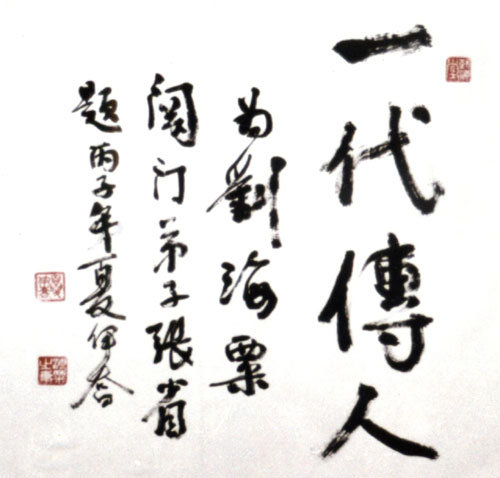 一代傳人
为劉海粟
関门弟子张省
題丙子年夏伊喬